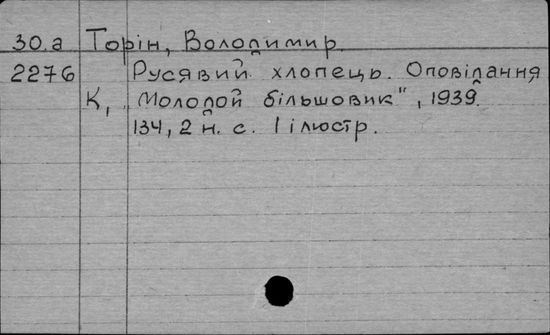 30.а Торін, Володимир.
2276 Русявий хлопець. Оповідання
К, „Молодой більшовик", 1939.
134, 2 н. с. 1 ілюстр.